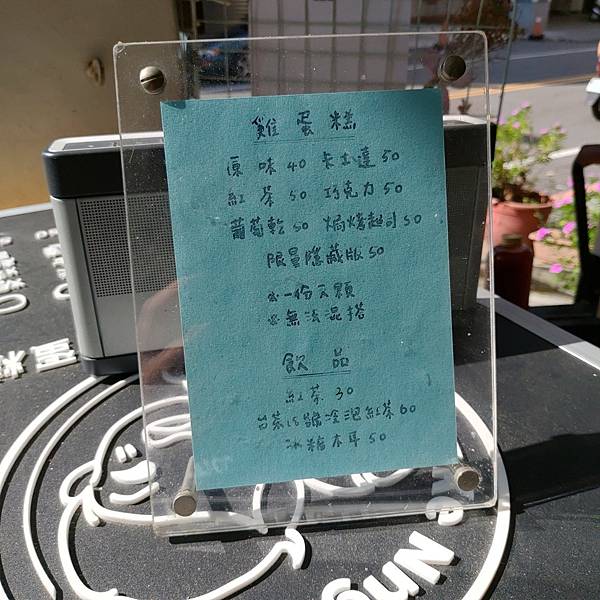 雞蛋糕
原味40 卡士達50
紅茶50 巧克力50
葡萄乾50 焗烤起司50
限量隱藏版50
※一份六顆
※無法混搭
飲品
紅茶30
台茶18號冷泡紅茶60
冰糖木耳50
Nng